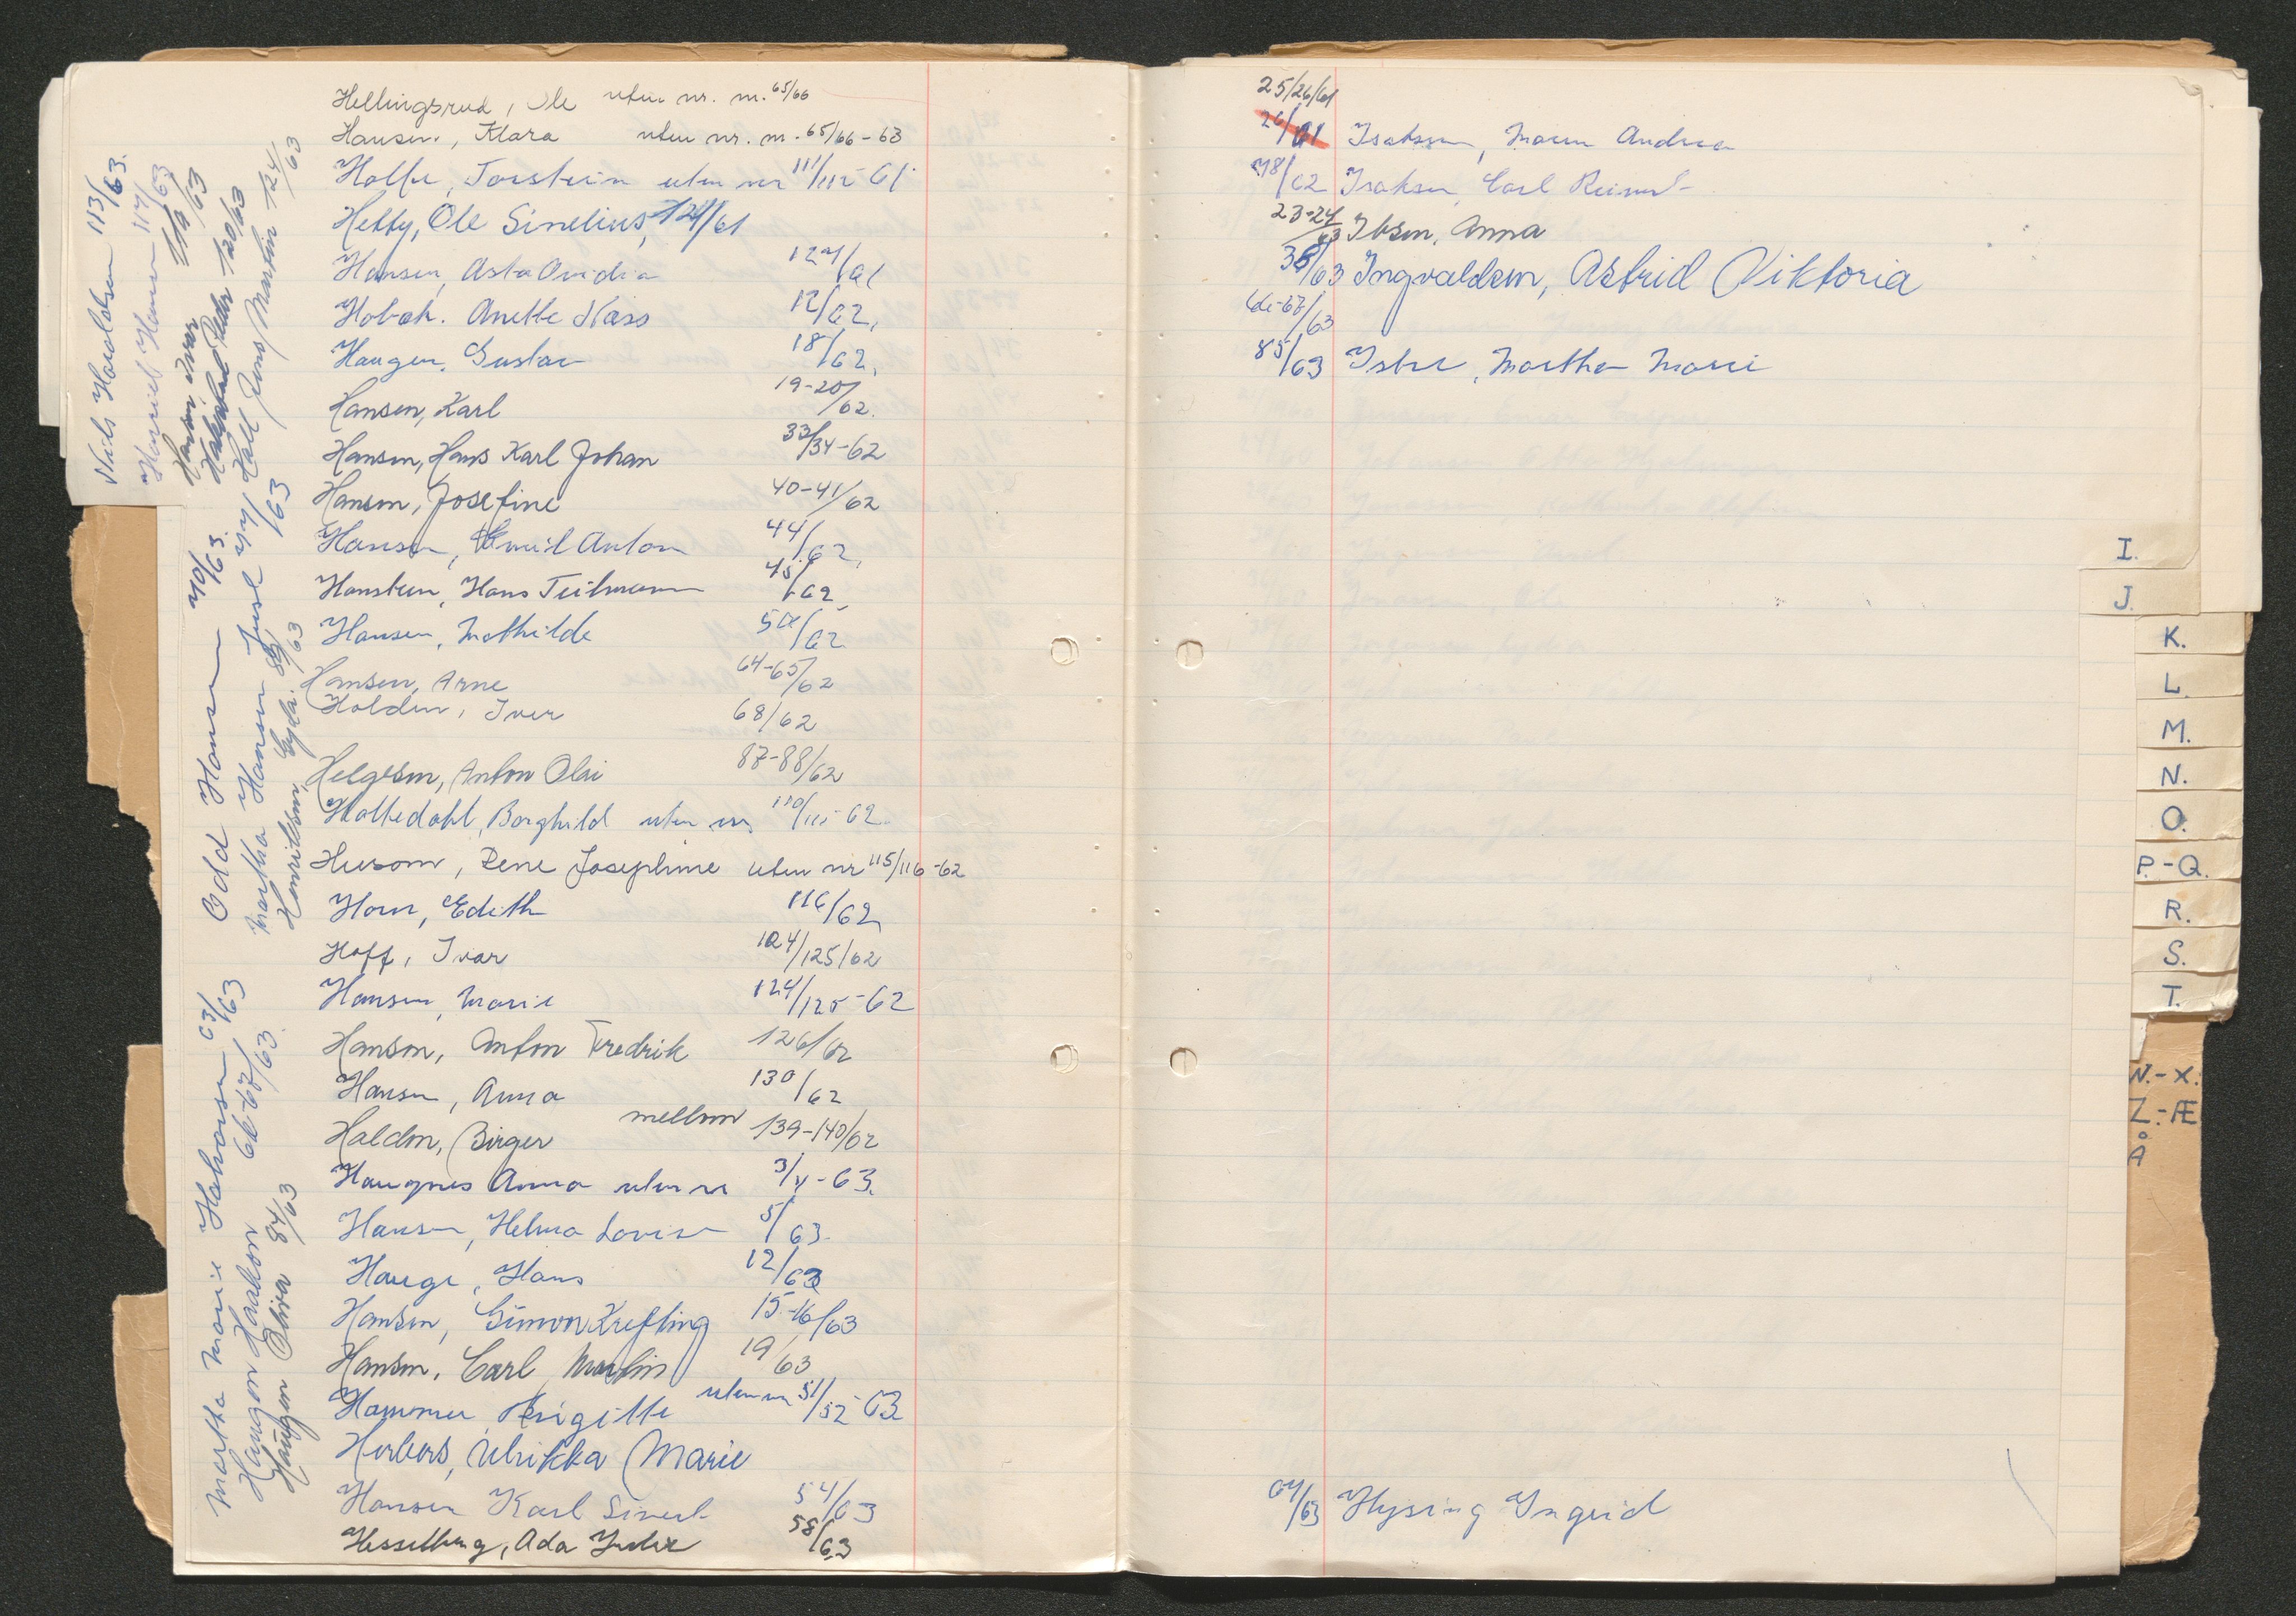 Hellingsrud, Ole uten nr. m. 65/66
Hansen, Klara uten nr. m. 65/66-63
Holte, Torstein uten nr 111/112-61
Hetty, Ole Sinelius, 124/61
Hansen, Asta Ovidia 127/61
Hobæk. Anette Næss 12/62,
Haugen, Gustav 18/62,
Hansen, Karl 19-20/62.
Hansen, Hans Karl Johan 33/34-62
Hansen, Josefine 40-41/62
Hansen, Emil Anton 44/62,
Hansteen, Hans Teilmann 45/62
Hansen, Mathilde 50/62
Hansen, Arne 64-65/62
Holden, Iver 68/62
Helgesen, Anton Olai 87-88/62
Holtedahl, Borghild uten nr 110/111-62
Husom, Lene Josephine uten nr 115/116-62
Horn, Edith 116/62
Hoff, Ivar 124/125/62
Hansen, Marie 124/125-62
Hanson, Anton Fredrik 126/62
Hansen, Anna 130/62
Halden, Birger mellom 139-140/62
Haugnes Anna uten nr 3/4-63.
Hansen, Helma Lovise 5/63.
Hauge, Hans 12/63
Hansen, Simon Krefting 15-16/63
Hansen, Carl Martin 19/63
Hammer, Brigitte uten nr 51/52-63
Herbers, Ulrikka Marie
Hansen Karl Sivert 54/63
Hesselberg, Ada Julie 58/63
Martha Marie Halvorsen 63/63
Haugen Haakon 66-67/63.
Haugen Oliva 84/63
Odd Hansen 70/63.
Martha Hansen Juul 77/63
Henriksen, Gyda. 89/63
Nils Haraldsen 113/63.
Henriet Hansen 117/63
Hansen, Ivar 119/63
Peder 120/63
Hall Jens Martin 124/63
25/26/61
26/61 Isaksen, Maren Andrea
78/62 Isaksen, Carl Reinert
23-24/63 Ibsen, Anna
38/63 Ingvaldsen, Astrid Viktoria
66-67/63
85/63 Isbre, Marthe Marie
64/63 Hysing Ingrid
I.
J.
K.
L.
M.
N.
O.
P.-Q.
R.
S.
T.
-X.
Z.-Æ
Å